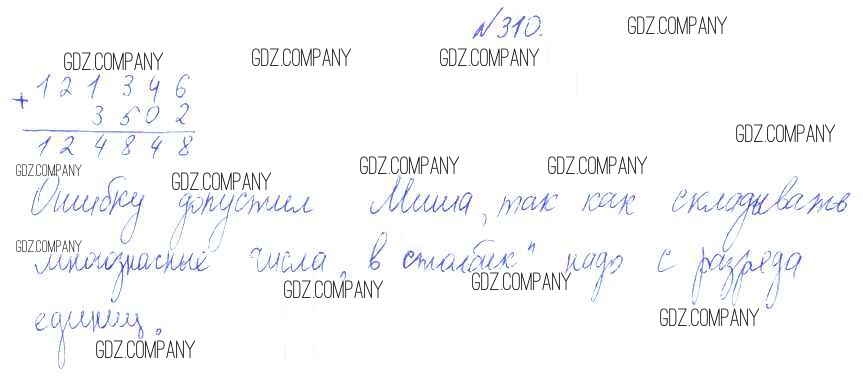 №310.
GDZ.COMPANY
GDZ.COMPANY GDZ.COMPANY GDZ.COMPANY
121346
+
3502
124848
GDZ.COMPANY
GDZ.COMPANY GDZ.COMPANY GDZ.COMPANY GDZ.COMPANY
Ошибку допустил Миша, так как складывать
GDZ.COMPANY
многозначные числа „в столбик" надо с разряда
GDZ.COMPANY GDZ.COMPANY
единиц.
GDZ.COMPANY
GDZ.COMPANY